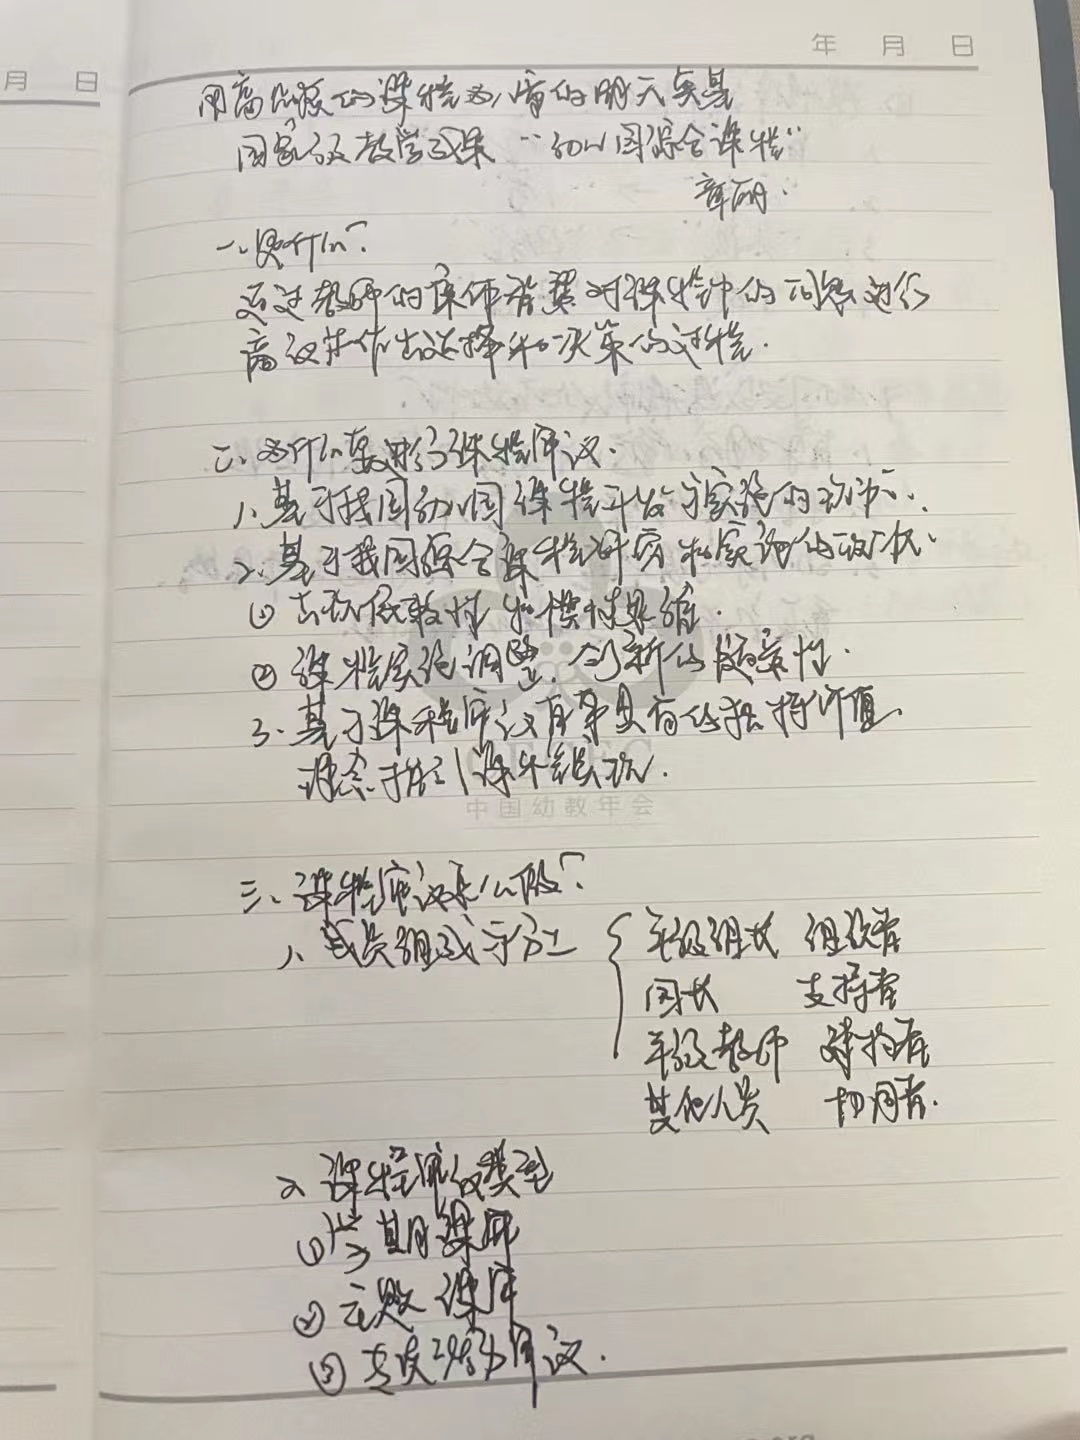 月 日
年 月 日
用高质量的课程为儿童的明天奠基
国家级教学成果“幼儿园综合课程”
章丽.
一、是什么？
通过教师的集体智慧对课程中的问题进行
审议并作出选择和决策的过程.
二、为什么要进行课程审议.
1、基于我国幼儿园课程开发与实施的
2、基于我国综合课程研究和实施的
① 去
② 课程实施调整、创新的随意性.
3、基于课程审议自身具有的独特价值
理念指引课程实践.
三、课程审议怎么做？
1、成员组成与分工
年级组长 组织者
园长 支持者
年级教师 建构者
其他人员 协同者.
2、课程审议类型
① 学期课审
② 主题课审
③ 审议.
中国幼教年会